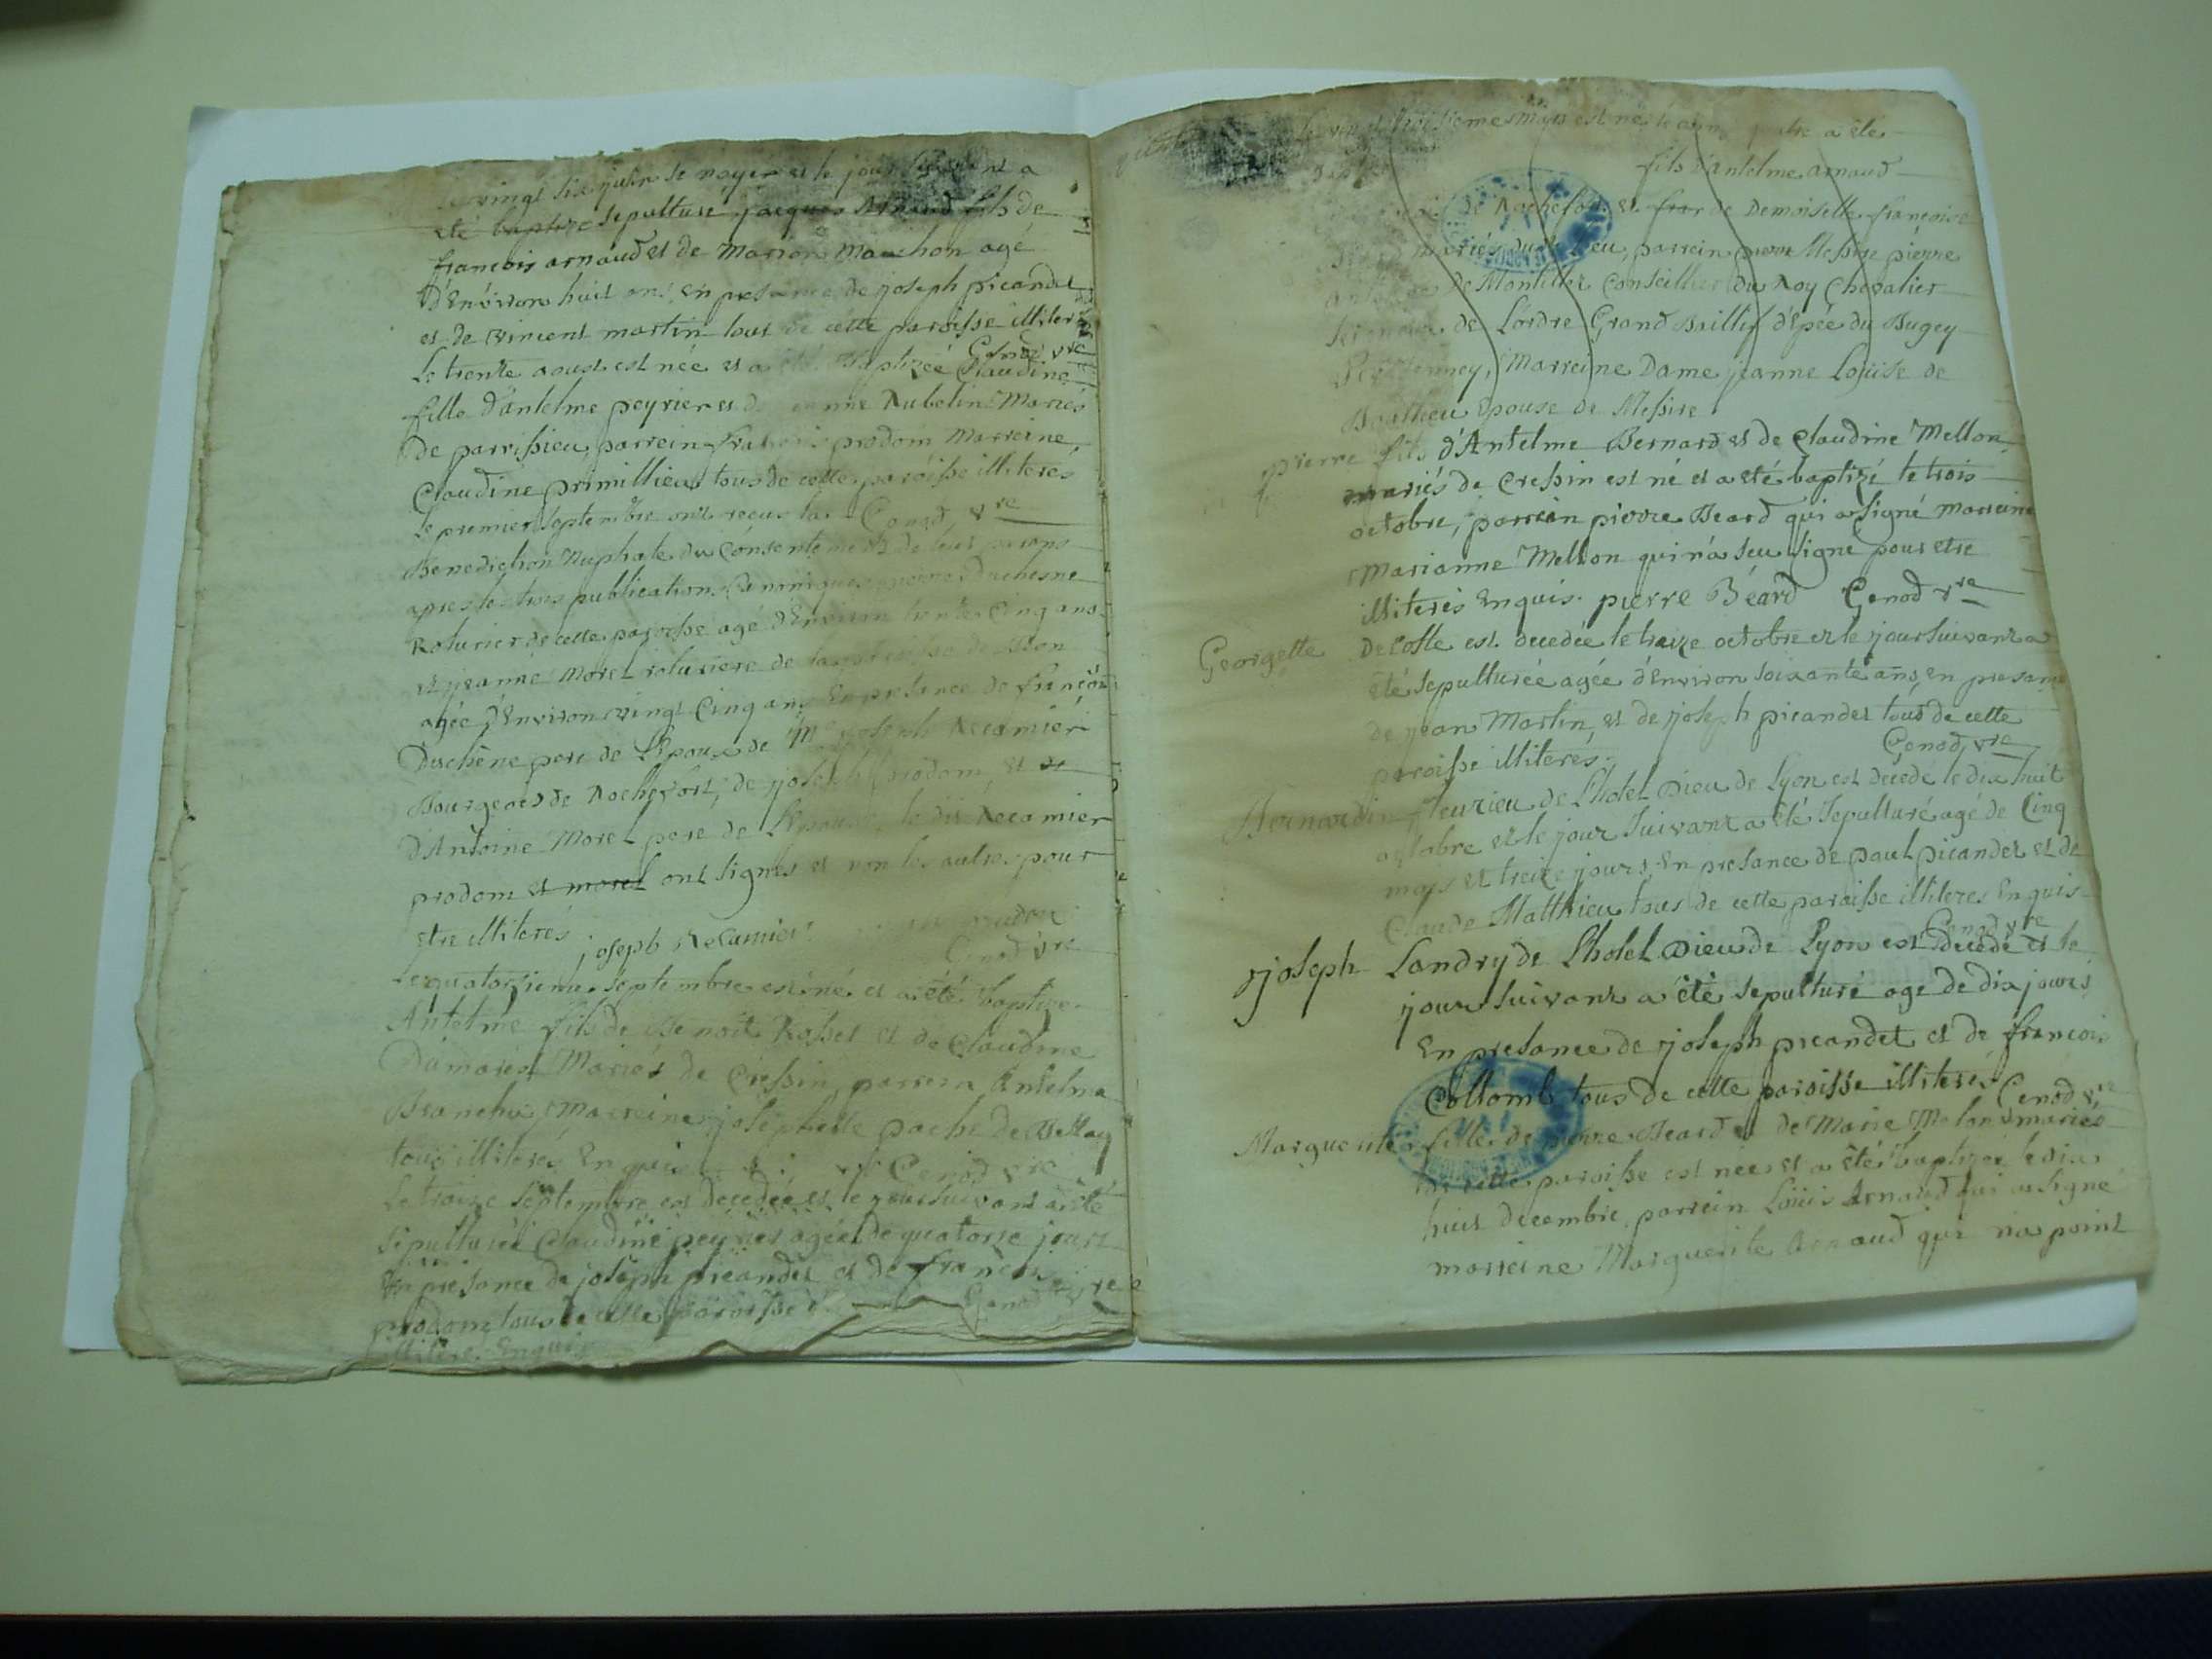 vingt six juin se noyer et le jour suivant a
été baptize sepulturé jacques Arnaud fils de
françois arnaud et de Marion Mauchon agé
d'Environ huit ans, En presance de joseph picandet
et de vincent martin tous de cette paroisse illiteres
Genod vre
Le trente aoust est née et a été Baptizée Claudine
fille d'antelme peyrier et de Rubelin Mariés
de parrissieu, parrein françois prodom Marreine
Claudine primillieu tous de cette paroisse illiterés
Genod vre
Le premier septembre ont reçus la
Benediction Nuptiale du consentement de leurs parens
apres les trois publications Canoniques Duchesne
Roturier de cette paroisse agé d'Environ trente Cinq ans
et jeanne Morel roturiere de la paroisse de
agée d'Environ vingt Cinq ans En presance de françois
Duchêne pere de L'Epoux de Mre joseph Recamier
Bourgeois de Rochefort, de joseph prodom, et de
d'Antoine Morel pere de L'Epouse, le dit Recamier
prodom et morel ont signés et non les autres pour
etre illiterés.
joseph Recamier
Genod vre
Le quatorzieme septembre est né et a été baptize
Antelme fils de Benoit Rosset et de Claudine
Damarest Mariés de Cressin, parrein Antelme
Branche, Marreine josephette pache de Bellay
tous illiterés Enquis Genod vre
Le treize septembre est decedée et le jour suivant a été
sepulturée Claudine peyrier agée de quatorze jours
En presance de joseph picandet et de françois
prodom tous de cette paroisse Genod vre
illiteres Enquis
est né a été
fils d'antelme arnaud
de Rochefort et fran de Demoiselle françoise
mariés du lieu, parrein pierre Messire pierre
de Montillet Conseiller du Roy Chevalier
de L'ordre Grand Baillif d'Epée du Bugey
Marreine Dame jeanne Loüise de
Epouse de Messire
Pierre fils d'Antelme Bernard et de Claudine Mellon
mariés de Cressin est né et a été baptizé le trois
octobre, parrein pierre Beard qui a signé marreine
Marianne Mellon qui n'a seu signe pour etre
illiterés Enquis. pierre Béard Genod vre
Georgette Delosle est decedée le treize octobre et le jour suivant a
été sepulturée agée d'Environ soixante ans, en presance
de jean Martin, et de joseph picandet tous de cette
paroisse illiterés. Genod, vre
Bernardin fleurieu de L'hotel Dieu de Lyon est decedé le dix huit
octobre et le jour suivant a été sepulturé agé de Cinq
mois et treize jours, En presance de paul picandet et de
Claude Matthieu tous de cette paroisse illiteres Enquis
Genod vre
joseph Landry de L'hotel Dieu de Lyon est decedé et le
jour suivant a été sepulturé agé de dix jours
En presance de joseph picandet et de françois
Collomb tous de cette paroisse illiterés Genod vre
Marguerite fille de pierre Beard et de Marie Melon mariés
de cette paroisse est née et a été baptizée le dix
huit decembre, parrein Loüis Arnaud qui a signé
marreine Marguerite Arnaud qui n'a point